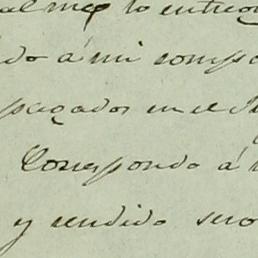 al mes lo entreg
do á mi compa
pagados en el
Correspondo á
y rendido ser